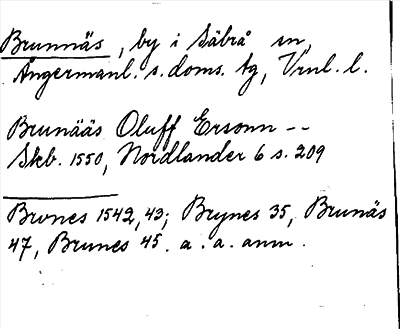 Brunnäs, by i Säbrå sn,
Ångermanl. s. doms. tg, Vrnl. l.
Brunääs Oluff Ersonn --
Skb. 1550, Nordlander 6 s. 209
Brvnes 1542, 43; Brynes 35, Brunäs
47, Brunes 45. a. a. anm.